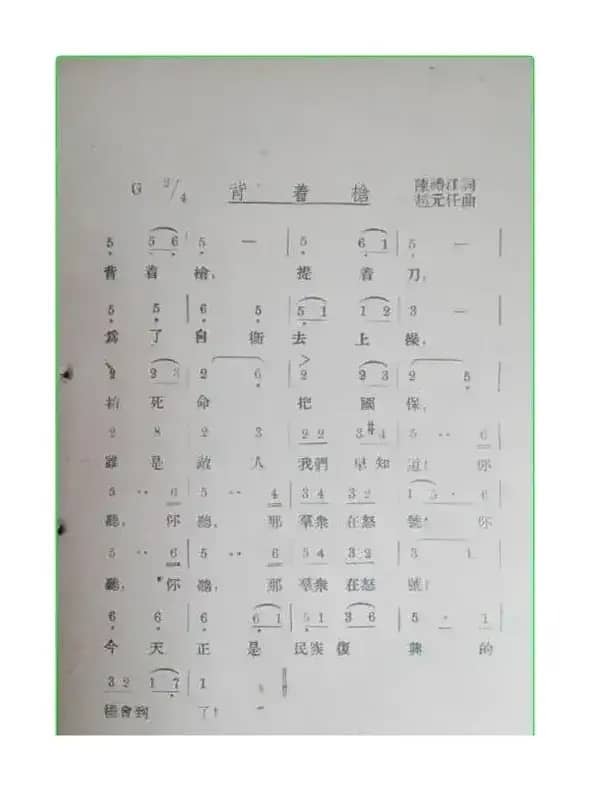 G 2/4 背着槍 陳禮江詞
趙元任曲
5 5 6 5 — 5 6 1 5 —
背着槍， 提着刀，
5 5 6 5 5 1 1 2 3 —
爲了自衞去上操，
2 2 3 2 6 2 2 3 2 5
拚死命 把國保，
2 2 2 3 2 2 3 #4 5 ·· 6
誰是敵人我們早知道！你
5 ·· 6 5 ·· 4 3 4 3 2 1 5 · 6
聽，你聽，那羣衆在怒號！你
5 ·· 6 5 ·· 6 5 4 3 2 3 1
聽，你聽，那羣衆在怒號！
6 6 6 6 1 5 1 3 6 5 · 1
今天正是民族復興的
3 2 1 7 1
機會到了！